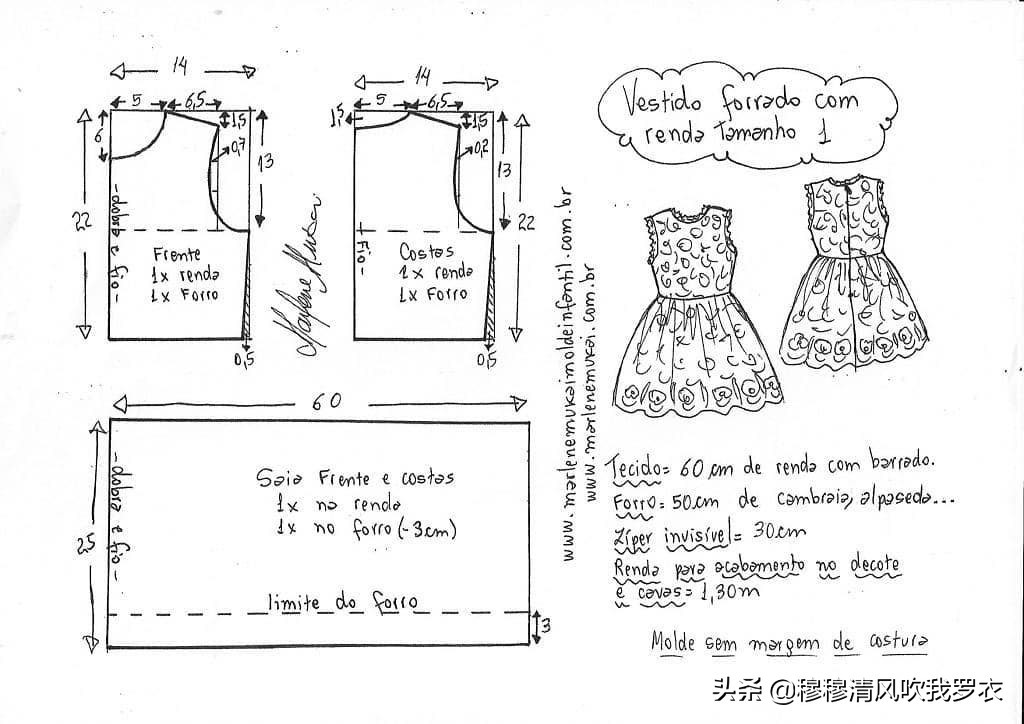 14
5
6,5
1,5
6
0,7
13
22
-dobra e fio-
Frente
1x renda
1x Forro
0,5
Marlene Mukai
14
5
6,5
1,5
1,5
0,2
13
22
Fio-
Costas
1x renda
1x Forro
0,5
60
25
-dobra e fio-
Saia Frente e costas
1x na renda
1x no forro (-3cm)
limite do forro
3
www.marlenemukaimoldeinfantil.com.br
www.marlenemukai.com.br
Vestido forrado com
renda Tamanho 1
Tecido= 60cm de renda com barrado.
Forro= 50cm de cambraia, alpaseda...
Zíper invisível= 30cm
Renda para acabamento no decote
e cavas= 1,30m
Molde sem margem de costura
头条 @穆穆清风吹我罗衣